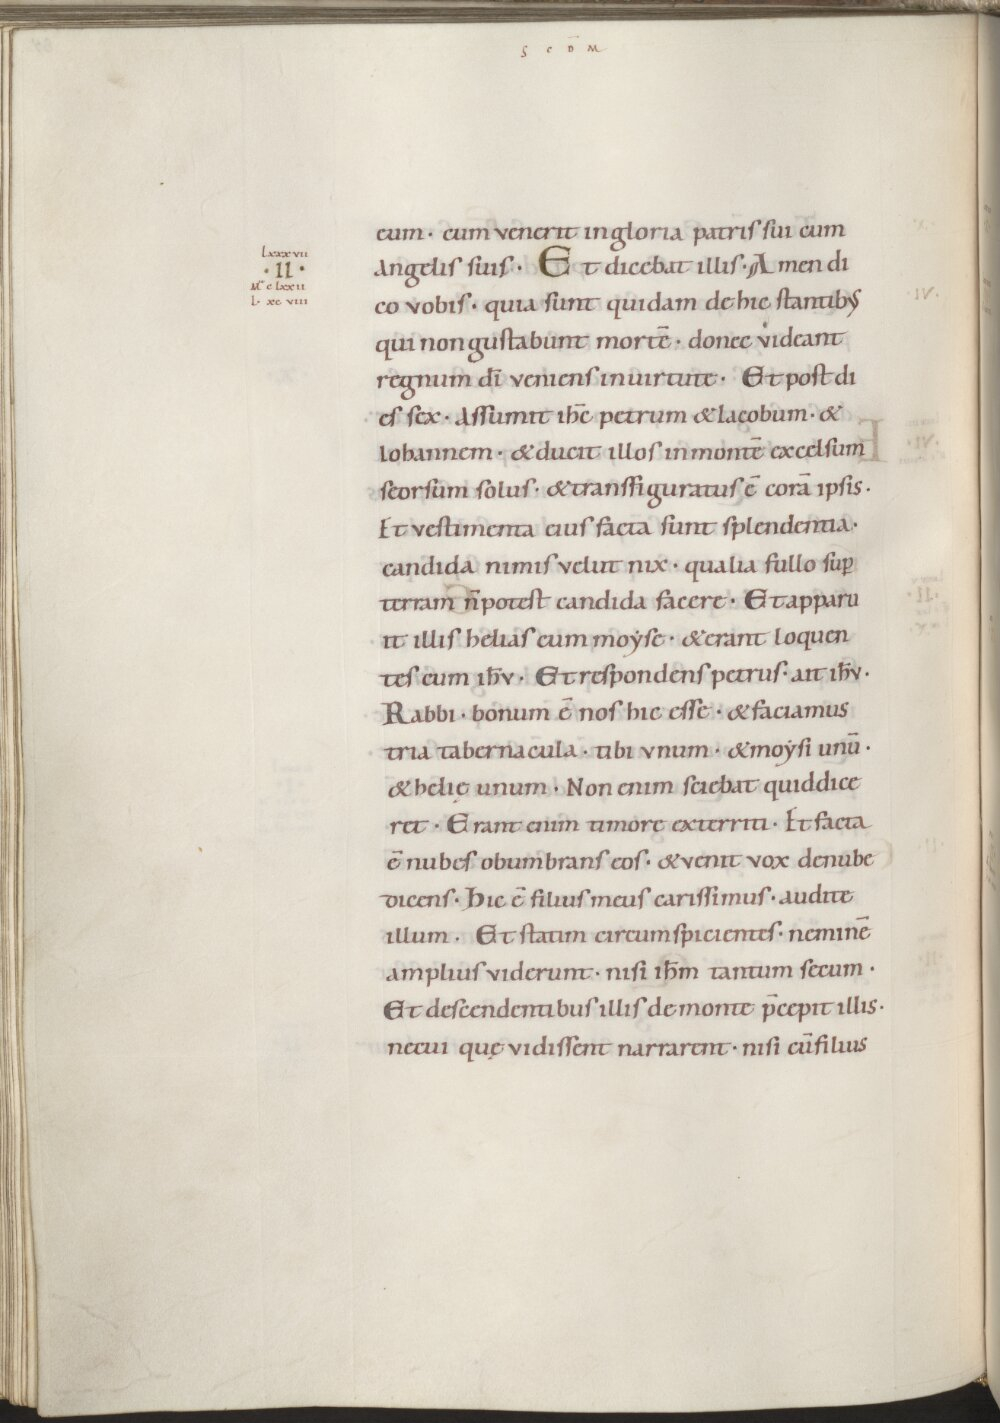 S C D̄ M
eum · cum venerit in gloria patris sui cum
lxxxvii
· II ·
M̄ clxxii
L · xcviii
angelis suis · Et dicebat illis · Amen di
co vobis · quia sunt quidam de hic stantib;
qui non gustabunt mortē · donec videant
regnum dī veniens in uirtute · Et post di
es sex · Assumit ih̄c petrum & Iacobum · &
Iohannem · & ducit illos in montē excelsum
seorsum solus · & transfiguratus ē corā ipsis ·
Et vestimenta eius facta sunt splendentia ·
candida nimis velut nix · qualia fullo sup̄
terram n̄ potest candida facere · Et apparu
it illis helias cum moẏse · & erant loquen
tes cum ih̄v · Et respondens petrus · ait ih̄v ·
Rabbi · bonum ē nos hic esse · & faciamus
tria tabernacula · tibi vnum · & moẏsi unū ·
& helię unum · Non enim sciebat quid dice
ret · Erant enim timore exterriti · Et facta
ē nubes obumbrans eos · & venit vox de nube
dicens · Hic ē filius meus carissimus · audite
illum · Et statim circumspicientes · neminē
amplius viderunt · nisi ih̄m tantum secum ·
Et descendentibus illis de monte p̄cepit illis ·
ne cui quę vidissent narrarent · nisi cū filius